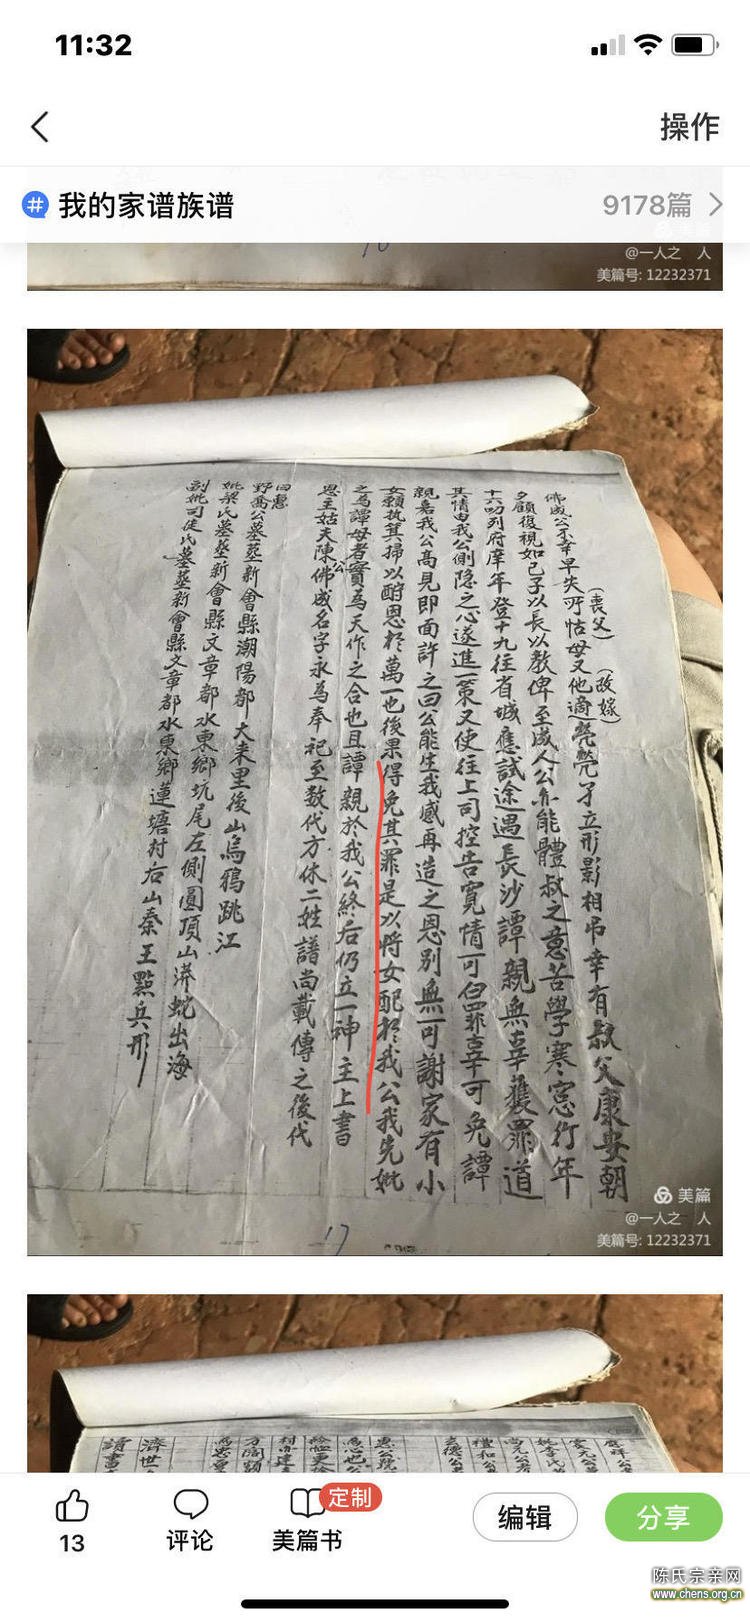 11:32
操作
我的家谱族谱
9178篇
美篇
@一人之 人
美篇号: 12232371
佛成公不幸早失所怙母又他適煢煢孑立形影相吊幸有叔父康安朝
(喪父)
(改嫁)
夕顧復視如己子以長以教俾至成人公亦能體叔之意苦學寒窓行年
十六叨列府庠年登十九往省城應試途遇長沙譚親無辜獲罪道
其情由我公惻隐之心遂進一策又使往上司控告寃情可白罪辜可免譚
親嘉我公高見即面許之曰公能生我感再造之恩别無可謝家有小
女願执箕掃以酧恩於萬一也後果得免其罪是以將女配於我公我先妣
之為譚母者實為天作之合也且譚親於我公終后仍立一神主上書
恩主姑夫陳公佛成名字永為奉祀至数代方休二姓譜尚載傳之後代
回憲
野喬公墓葬新會縣潮陽都大来里後山烏鴉跳江
妣梁氏墓葬新會縣文章都水東鄉坑尾左側圓頂山蟒蛇出海
副妣司徒氏墓葬新會縣文章都水東鄉蓮塘村右山秦王點兵形
17
美篇
@一人之 人
美篇号: 12232371
13
评论
定制
美篇书
编辑
分享
陈氏宗亲网
www.chens.org.cn